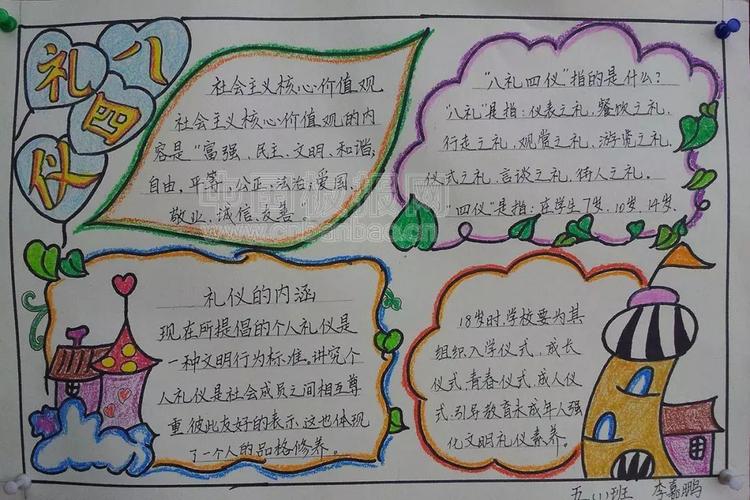 八礼四仪
社会主义核心价值观
社会主义核心价值观的内
容是“富强、民主、文明、和谐;
自由、平等、公正、法治;爱国、
敬业、诚信、友善。
“八礼四仪”指的是什么?
“八礼”是指:仪表之礼,餐饮之礼,
行走之礼,观赏之礼,游览之礼,
仪式之礼,言谈之礼,待人之礼。
“四仪”是指:在学生7岁、10岁、14岁、
礼仪的内涵
现在所提倡的个人礼仪是
一种文明行为标准。讲究个
人礼仪是社会成员之间相互尊
重,彼此友好的表示,这也体现
了一个人的品格修养。
18岁时,学校要为其
组织入学仪式,成长
仪式,青春仪式,成人仪
式,引导教育未成年人强
化文明礼仪素养。
五(1)班 李嘉鹏
中国板报网
cnbanbao.cn